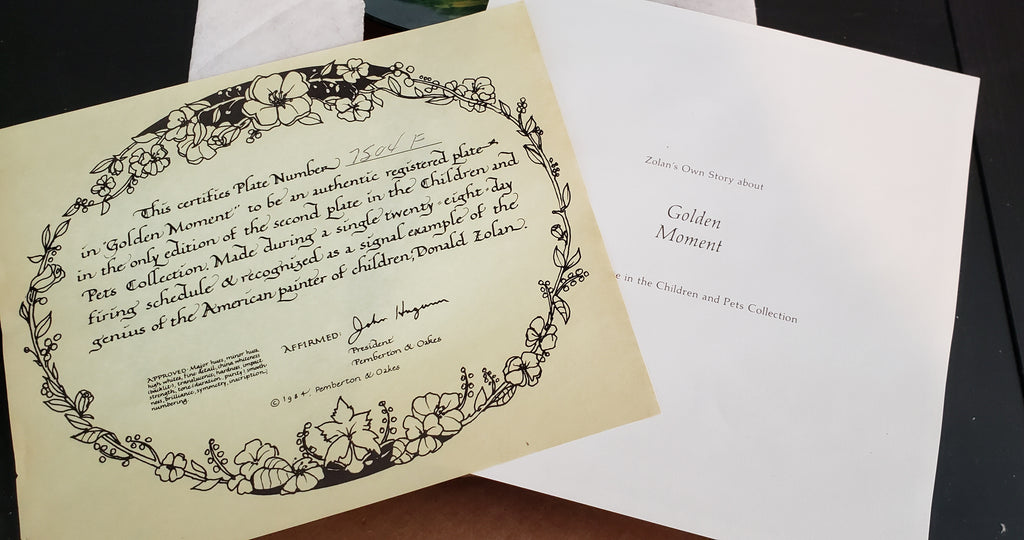 This certifies Plate Number 7504 F
in "Golden Moment" to be an authentic registered plate
in the only edition of the second plate in the Children and
Pets Collection. Made during a single twenty-eight-day
firing schedule & recognized as a signal example of the
genius of the American painter of children, Donald Zolan.
AFFIRMED:
President
Pemberton & Oakes
APPROVED: Major hues, minor hues
high whites, fine detail, china whiteness
(backlit), translucence, hardness, impact
strength, tone (duration, purity) smooth
ness, brilliance, symmetry, inscription,
numbering.
© 1984, Pemberton & Oakes
Zolan's Own Story about
Golden
Moment
e in the Children and Pets Collection